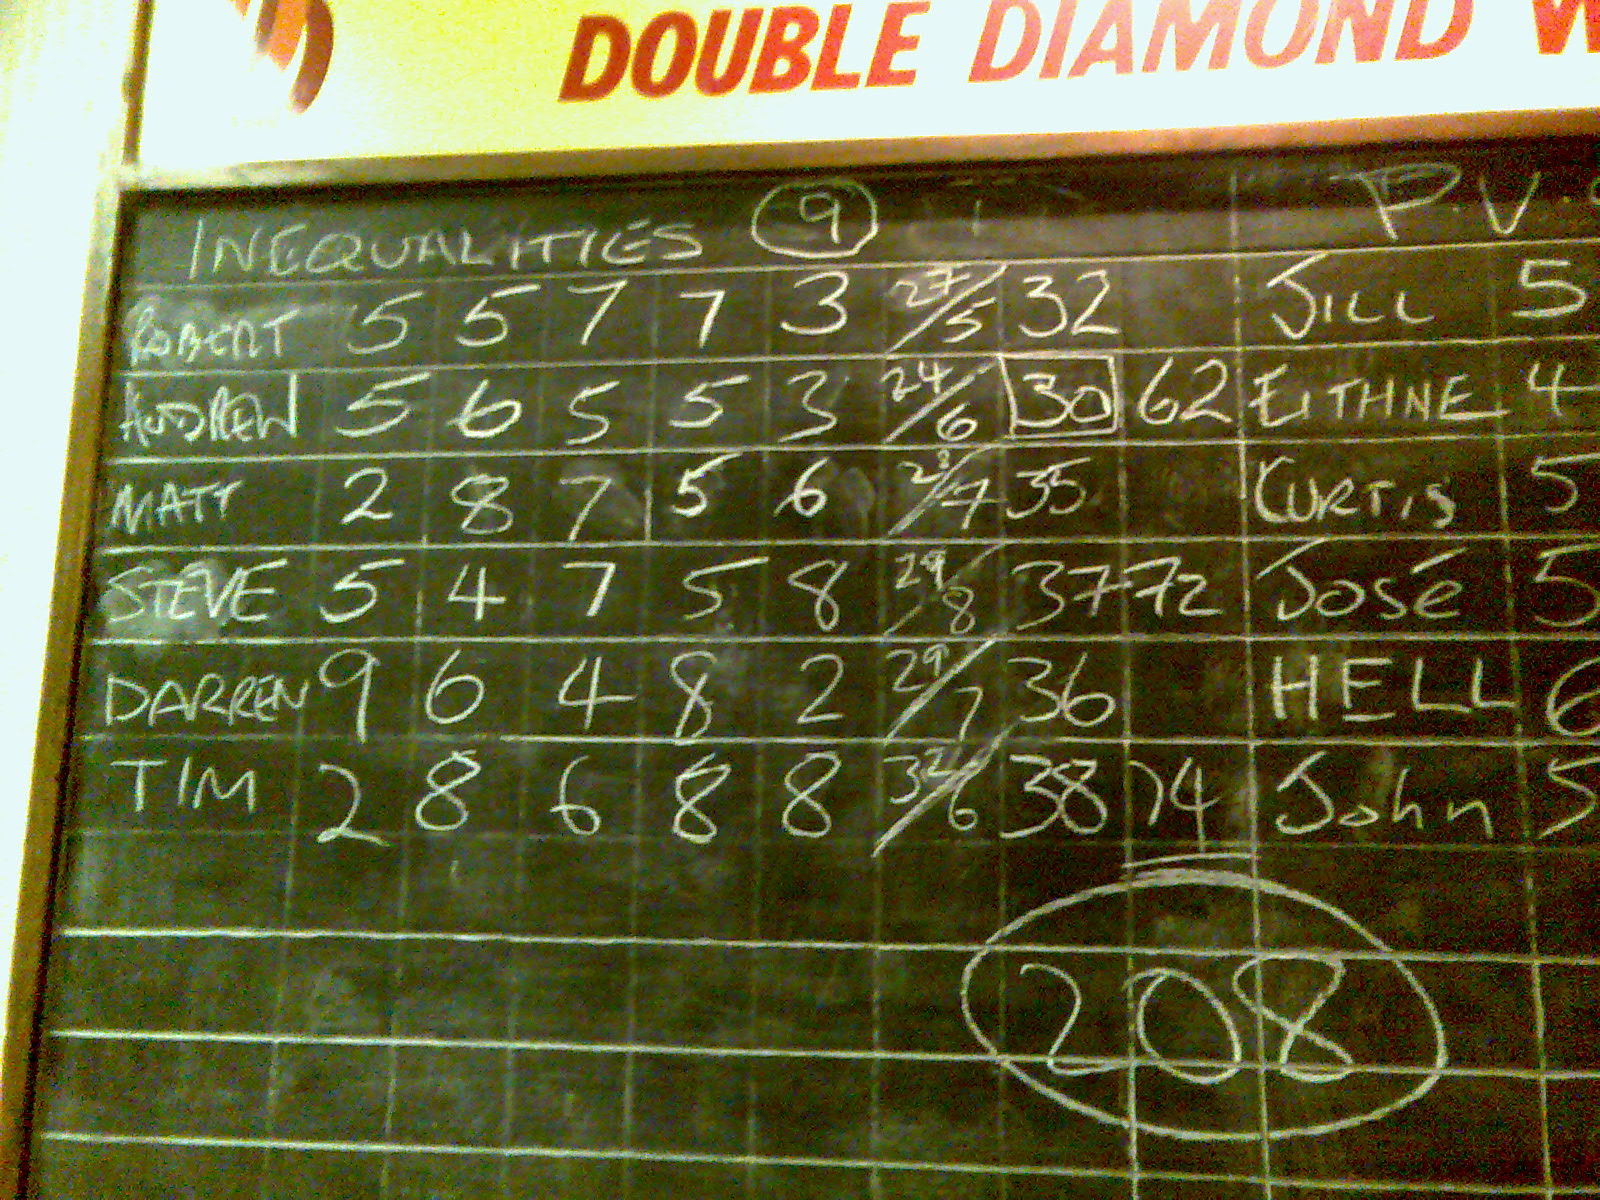 DOUBLE DIAMOND W
INEQUALITIES 9 P.V
ROBERT 5 5 7 7 3 27/5 32 JILL 5
ANDREW 5 6 5 5 3 24/6 30 62 EITHNE 4
MATT 2 8 7 5 6 28/7 35 CURTIS 5
STEVE 5 4 7 5 8 29/8 37 72 José 5
DARREN 9 6 4 8 2 29/7 36 HELL 6
TIM 2 8 6 8 8 32/6 38 74 John 5
208